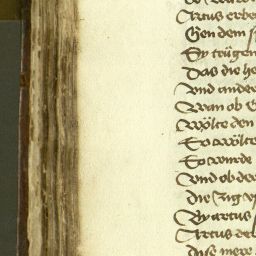 Artus erbe
Gen dem
Sy trügen
Das die he
Vnd ander
Wan ob E
Wölte den
So wölte
So wurde
Vnd ob der
Die zug v
By artus
Artus de
Dise mere